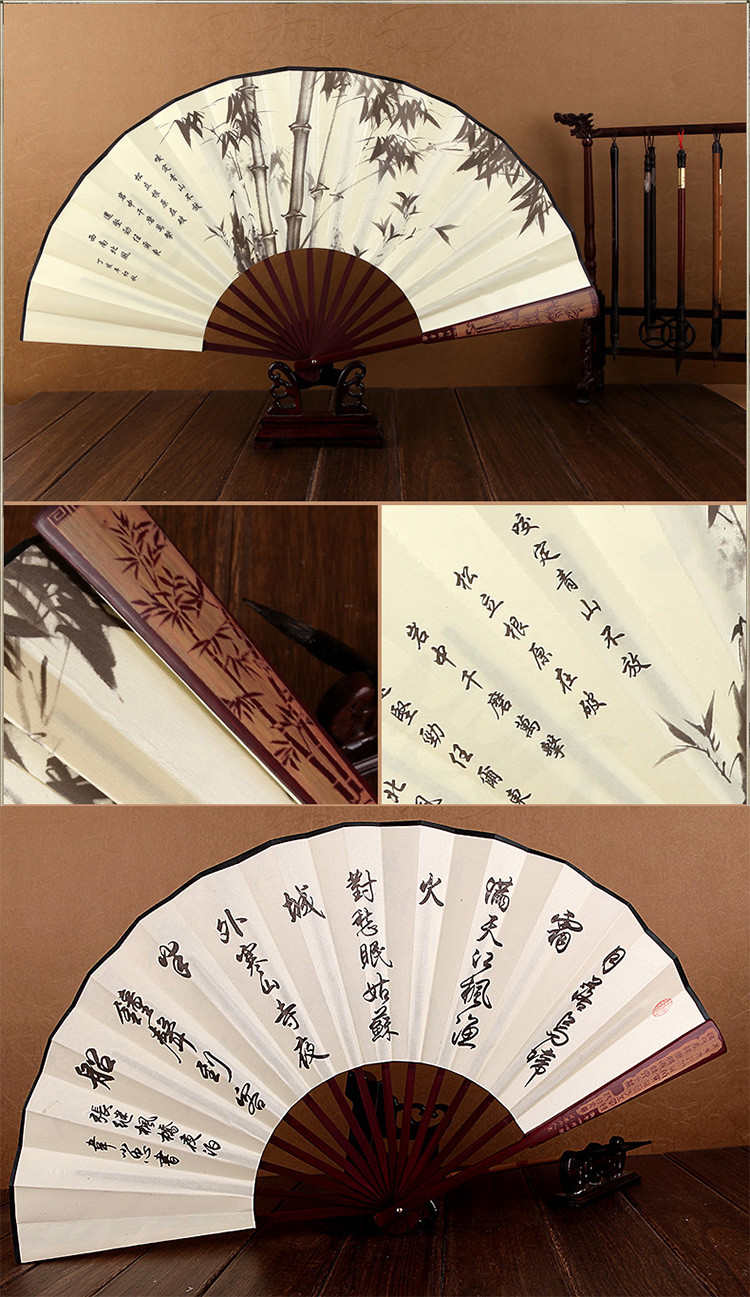 咬定青山不放
松立根原在破
岩中千磨萬擊
還堅勁任爾東
西南北風
咬定青山不放
松立根原在破
岩中千磨萬擊
堅勁任爾東
北風
月落烏啼
霜
滿天江楓漁
火
對愁眠姑蘇
城
外寒山寺夜
半
鐘聲到客
船
張继楓橋夜泊
書